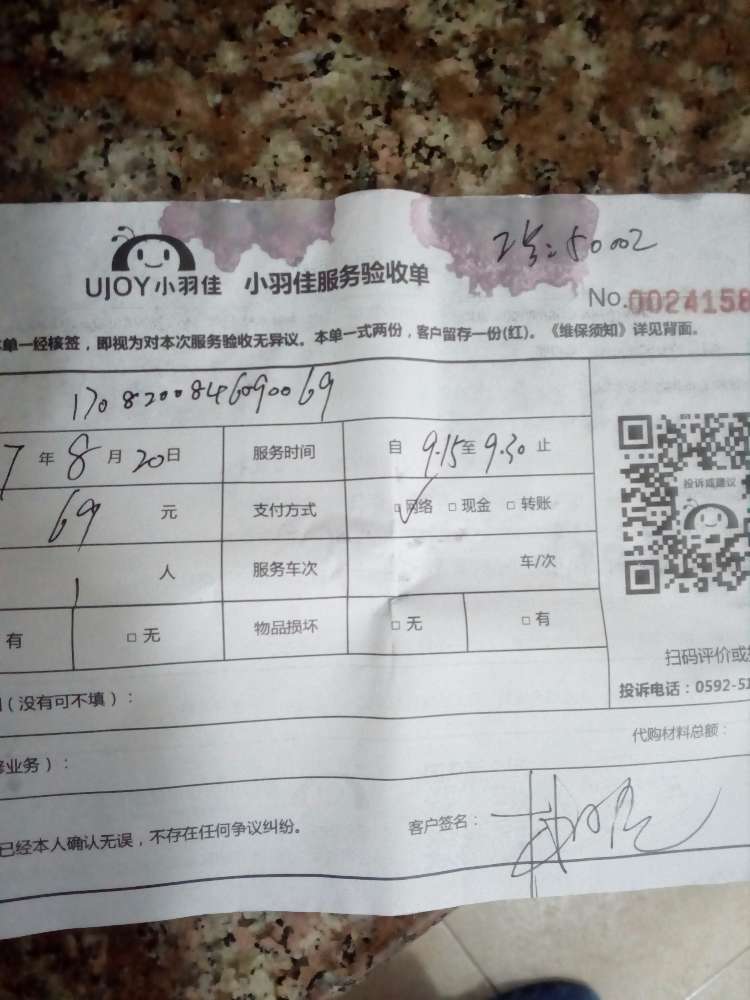 工号:50002
UJOY小羽佳 小羽佳服务验收单
No.0024158
单一经核签，即视为对本次服务验收无异议。本单一式两份，客户留存一份(红)。《维保须知》详见背面。
1708200846090069
7 年 8 月 20 日 服务时间 自 9.15 至 9.30 止
69 元 支付方式 ☑网络 □现金 □转账
投诉或建议
1 人 服务车次 车/次
有 □无 物品损坏 □无 □有
扫码评价或
(没有可不填)：
投诉电话：0592-51
代购材料总额：
业务)：
已经本人确认无误，不存在任何争议纠纷。 客户签名：